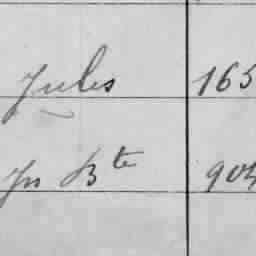 Jules 165
Jn Bte 904